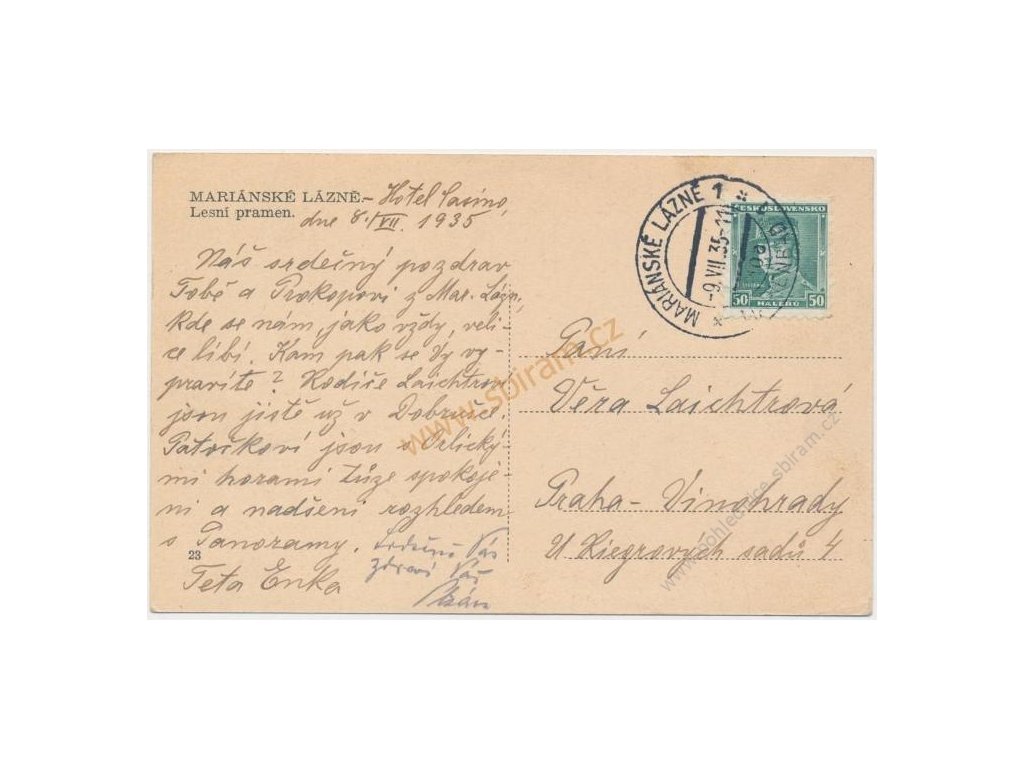 MARIÁNSKÉ LÁZNĚ.- Hotel Casino,
Lesní pramen. dne 8./VII. 1935
Náš srdečný pozdrav
Tobě a Prokopovi z Mar. Lázní,
kde se nám, jako vždy, veli-
ce líbí. Kam pak se Vy vy-
pravíte? Rodiče Laichtrovi
jsou jistě už v Dobrušce.
Patočkovi jsou s Orlický-
mi horami túze spokoje-
ni a nadšeni rozhledem
s Panoramy.
23
Teta Enka
srdečně Vás
zdraví Váš
MARIÁNSKÉ LÁZNĚ 1
-9.VII.35-11
ČESKOSLOVENSKO
50 HALÉŘŮ 50
Paní
Věra Laichtrová
Praha - Vinohrady
U Riegrových sadů 4
www.sbiram.cz
www.pohlednice.sbiram.cz